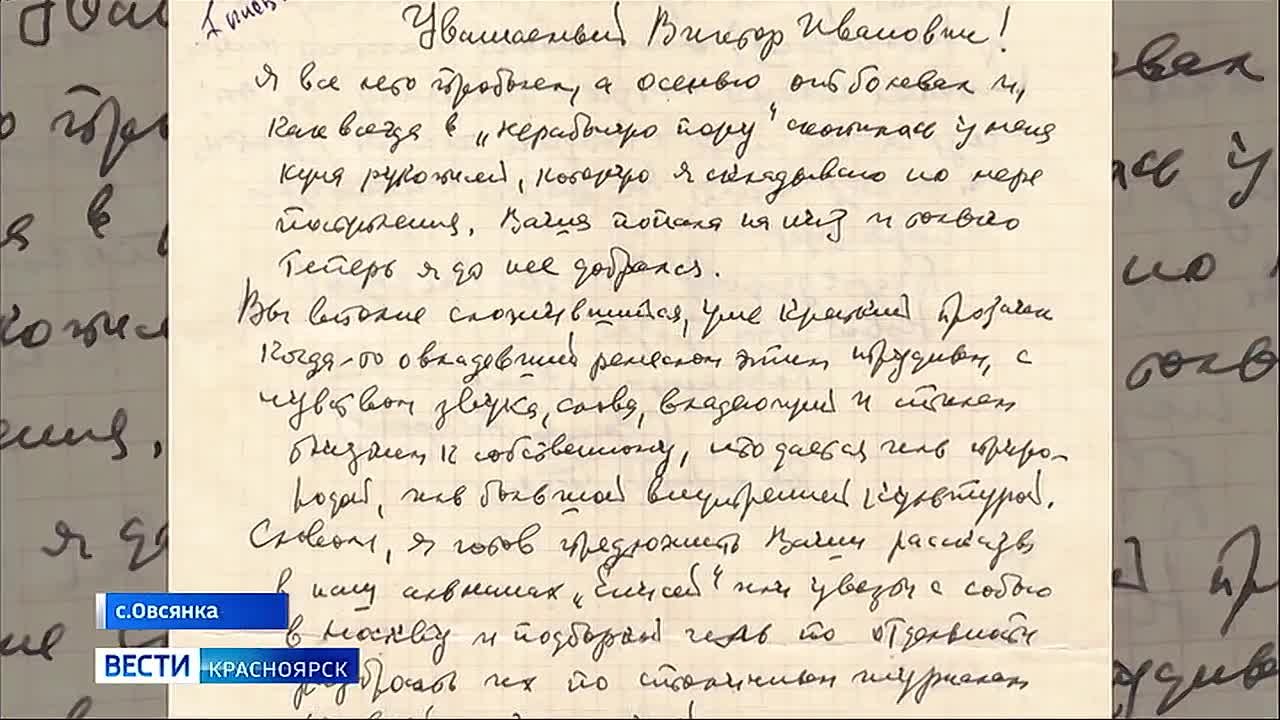 Уважаемый Виктор Иванович!
Я все лето пробыл, а осенью отболевал и,
как всегда в „нерабочую пору" скопилась у меня
куча рукописей, которую я складываю по мере
поступления. Ваша попала на низ и только
теперь я до нее добрался.
Вы вполне сложившийся, уже крепкий прозаик
когда-то овладевший ремеслом этим трудным, с
чувством звука, слова, владеющий и стилем
близким к собственному, что дается иль приро-
дой, иль большой внутренней культурой.
Словом, я готов предложить Ваши рассказы
в наш альманах „Енисей" или увезти с собою
в Москву и подборкой иль по отдельности
разбросать их по столичным журналам
с.Овсянка
ВЕСТИ КРАСНОЯРСК